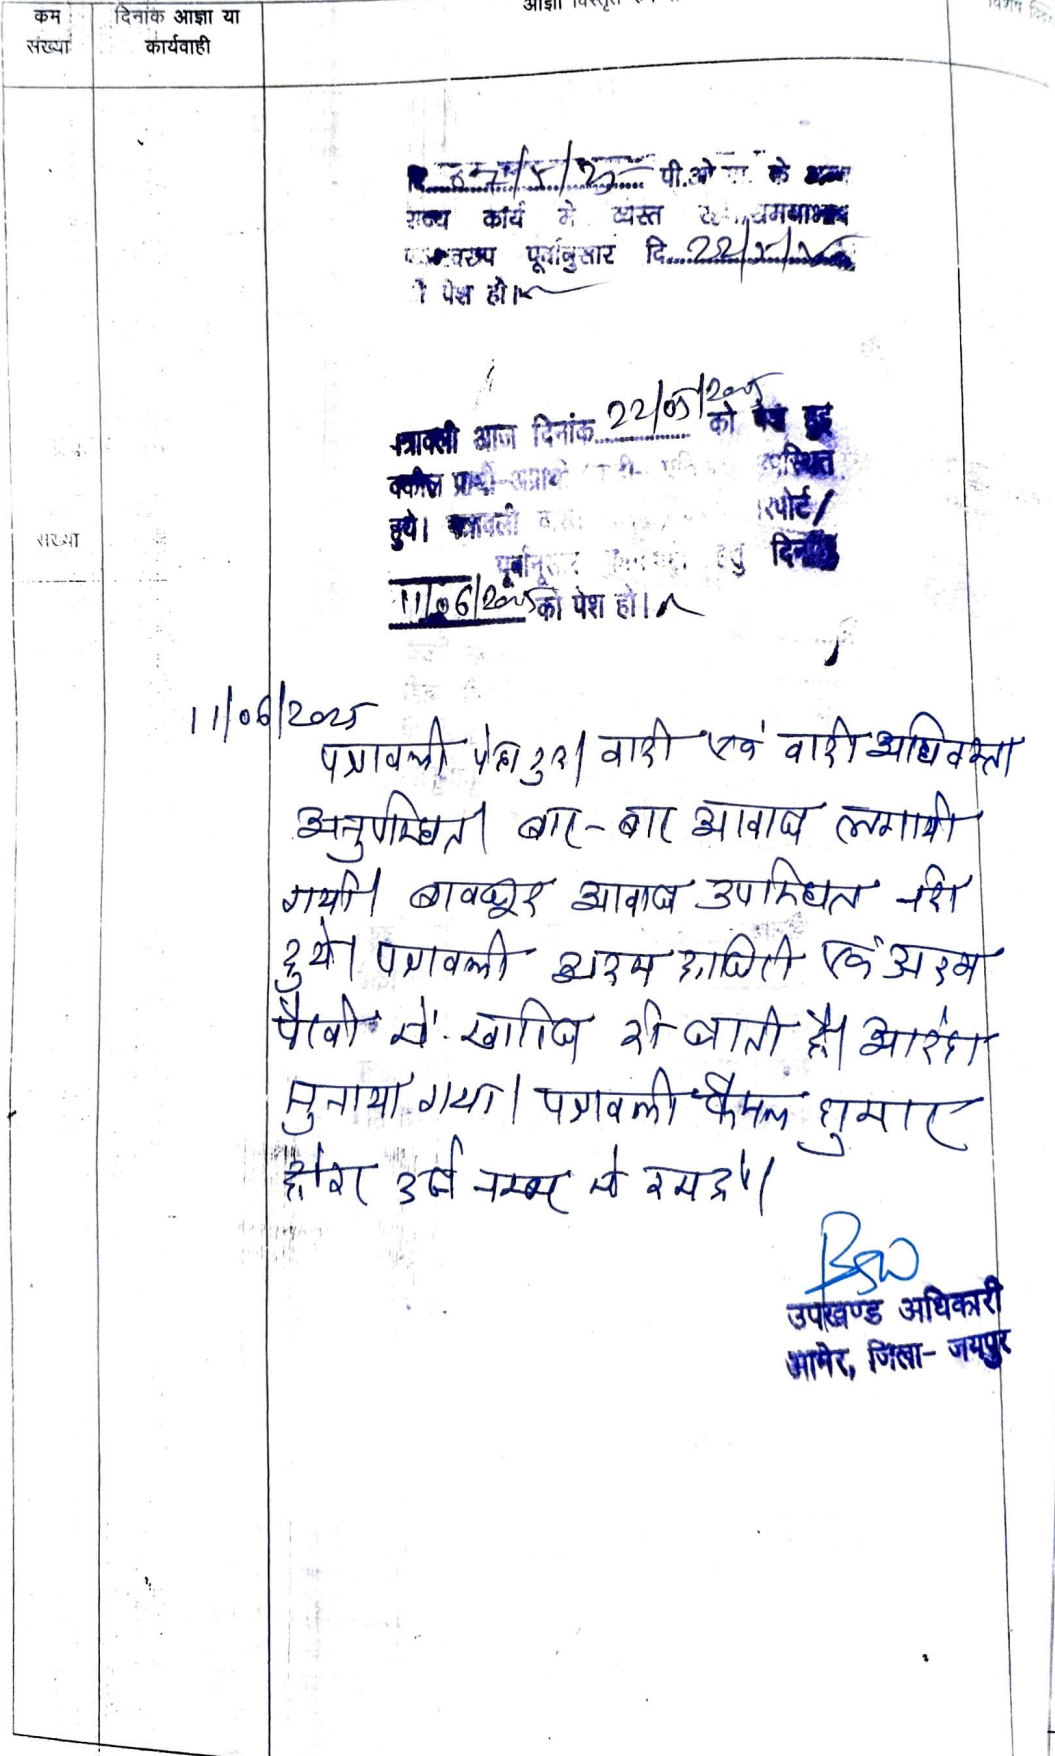 कम संख्या
दिनांक आज्ञा या कार्यवाही
पी.ओ के
राज्य कार्य मे व्यस्त
पूर्वानुसार दि. 22/5/
पेश हो।
पत्रावली आज दिनांक 22/05/2025 को पेश हुई
वकील प्रार्थी-अप्रार्थी उपस्थित
हुये। पत्रावली रिपोर्ट/
पूर्वानुसार हेतु दिनांक
11/06/2025 को पेश हो।
संख्या
11/06/2025
पत्रावली पेश हुई। वादी एवं वादी अधिवक्ता
अनुपस्थित। बार-बार आवाज लगायी
गयी। बावजूद आवाज उपस्थित नही
हुये। पत्रावली अदम हाजिरी एवं अदम
पैरवी में खारिज की जाती है। आदेश
सुनाया गया। पत्रावली फैसल शुमार
होकर दर्ज नम्बर से कम हो।
उपखण्ड अधिकारी
आमेर, जिला- जयपुर